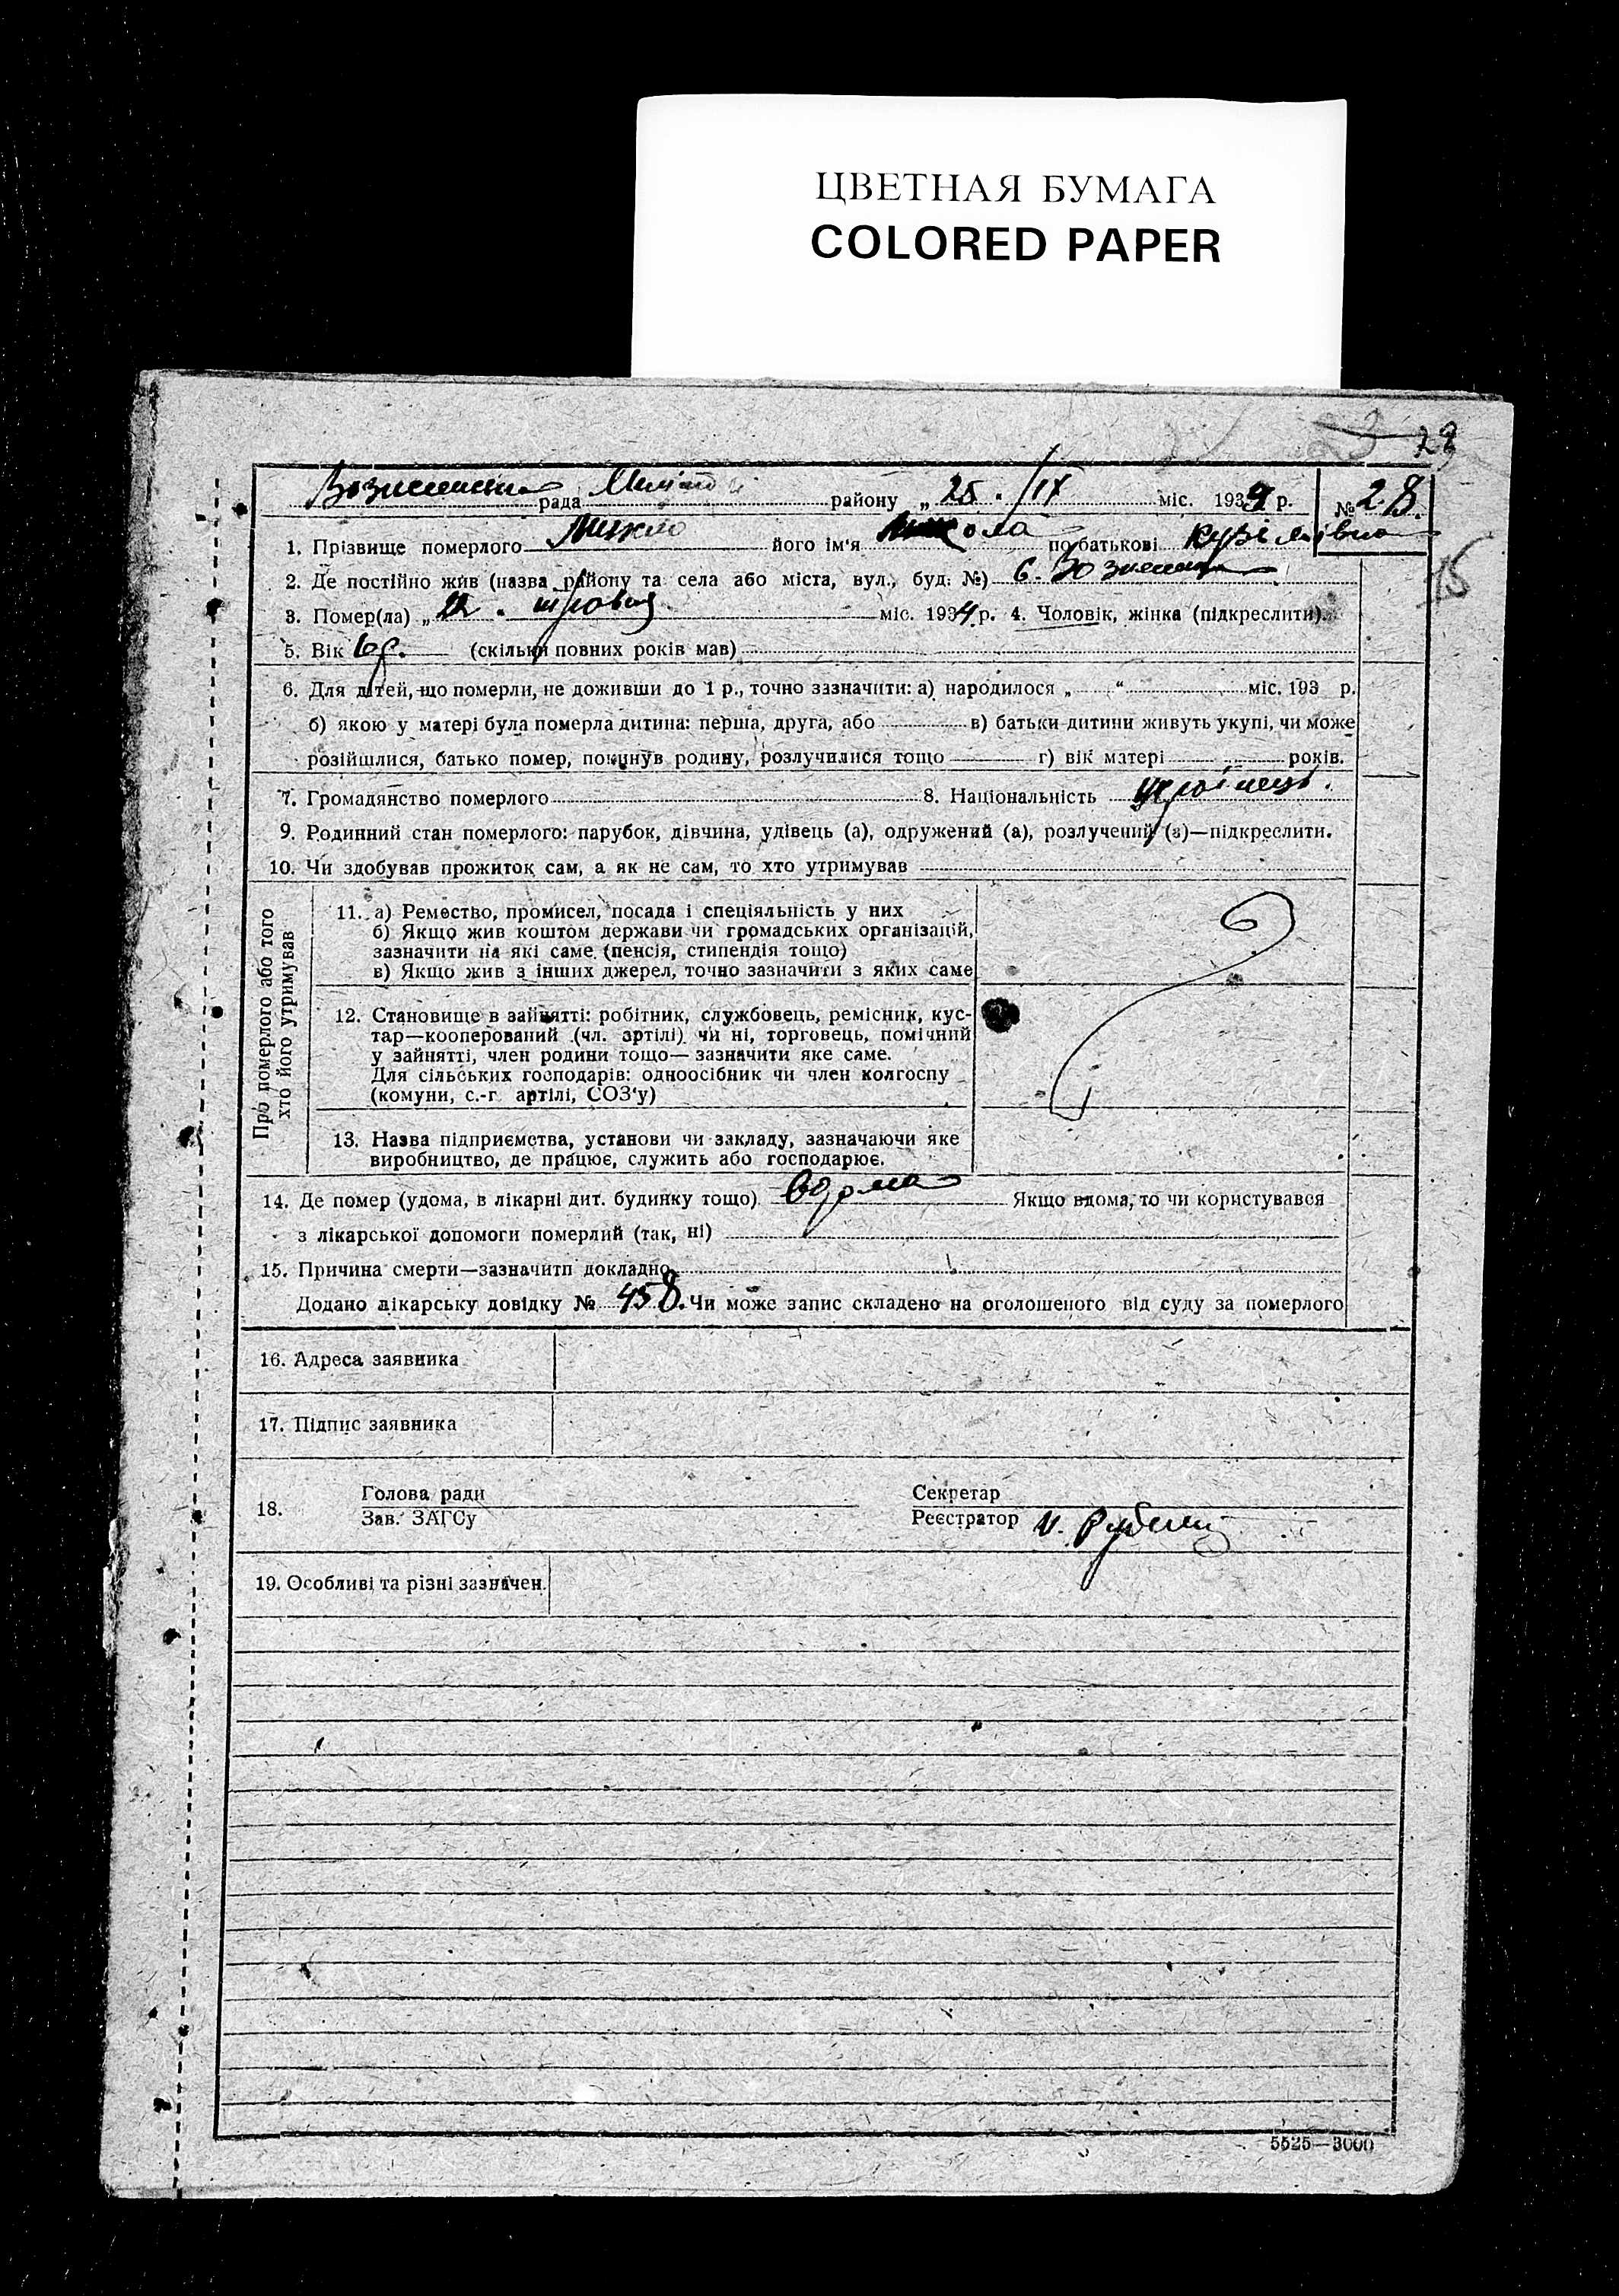 ЦВЕТНАЯ БУМАГА
COLORED PAPER
28
рада району „25. /IX міс. 1934 р. № 28.
1. Прізвище померлого його ім'я по батькові
2. Де постійно жив (назва району та села або міста, вул., буд. №) с.
3. Помер(ла) „22. травня міс. 1934 р. 4. Чоловік, жінка (підкреслити).
5. Вік (скільки повних років мав)
6. Для дітей, що померли, не доживши до 1 р., точно зазначити: а) народилося „ “ міс. 193 р.
б) якою у матері була померла дитина: перша, друга, або в) батьки дитини живуть укупі, чи може
розійшлися, батько помер, покинув родину, розлучилися тощо г) вік матері років.
7. Громадянство померлого 8. Національність українець.
9. Родинний стан померлого: парубок, дівчина, удівець (а), одружений (а), розлучений (а)—підкреслити.
10. Чи здобував прожиток сам, а як не сам, то хто утримував
Про померлого або того
хто його утримував
11. а) Ремество, промисел, посада і спеціяльність у них
б) Якщо жив коштом держави чи громадських організацій,
зазначити на які саме (пенсія, стипендія тощо)
в) Якщо жив з інших джерел, точно зазначити з яких саме
12. Становище в зайнятті: робітник, службовець, ремісник, кус-
тар—кооперований (чл. артілі) чи ні, торговець, помічний
у зайнятті, член родини тощо— зазначити яке саме.
Для сільських господарів: одноосібник чи член колгоспу
(комуни, с.-г. артілі, СОЗ'у)
13. Назва підприємства, установи чи закладу, зазначаючи яке
виробництво, де працює, служить або господарює.
14. Де помер (удома, в лікарні дит. будинку тощо) вдома Якщо вдома, то чи користувався
з лікарської допомоги померлий (так, ні)
15. Причина смерти—зазначити докладно
Додано лікарську довідку № 458. Чи може запис складено на оголошеного від суду за померлого
16. Адреса заявника
17. Підпис заявника
18. Голова ради Секретар
Зав. ЗАГСу Реєстратор
19. Особливі та різні зазначен.
5525—3000